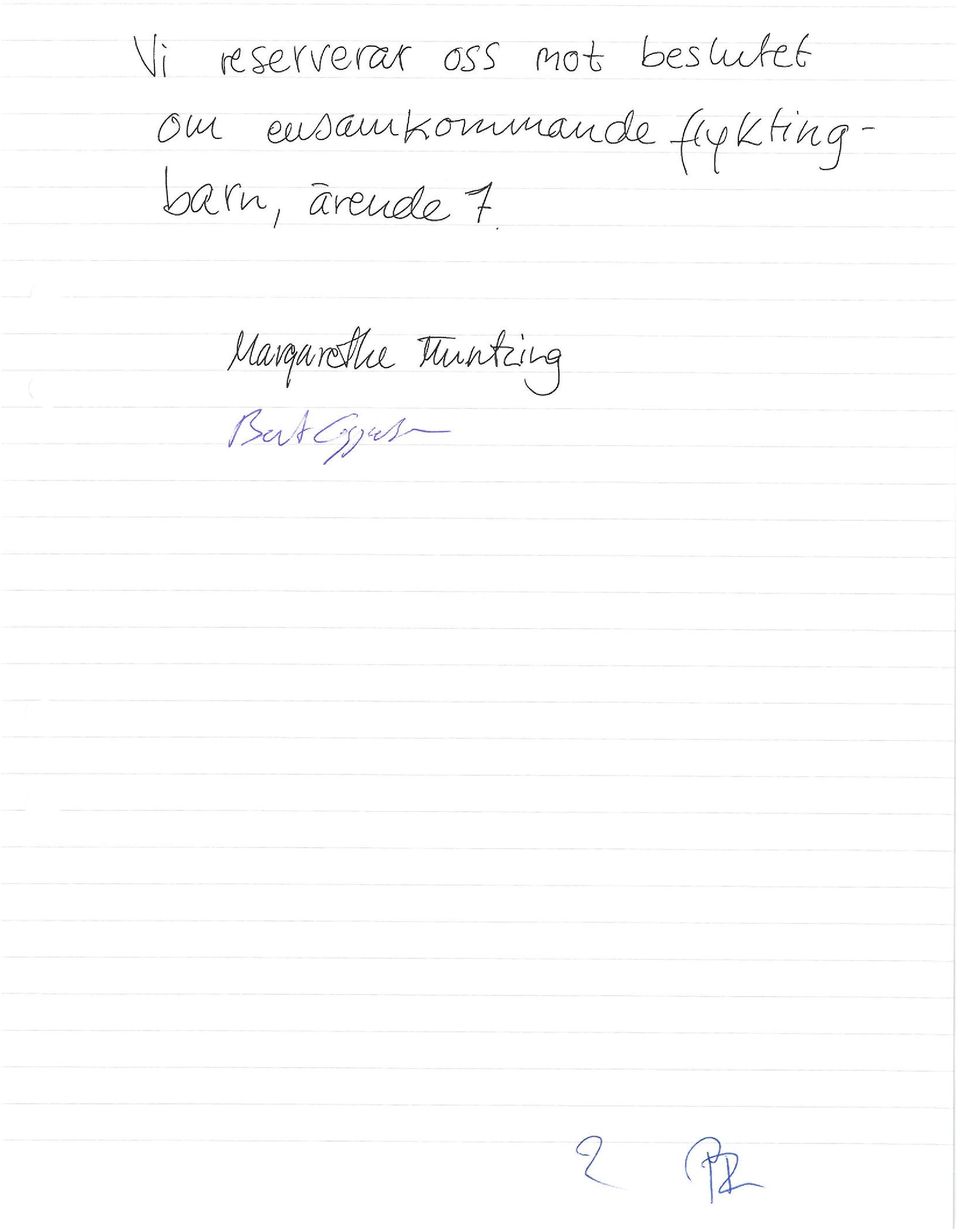 Vi reserverar oss mot beslutet
om ensamkommande flykting-
barn, ärende 7.
Margarethe Müntzing
Bert